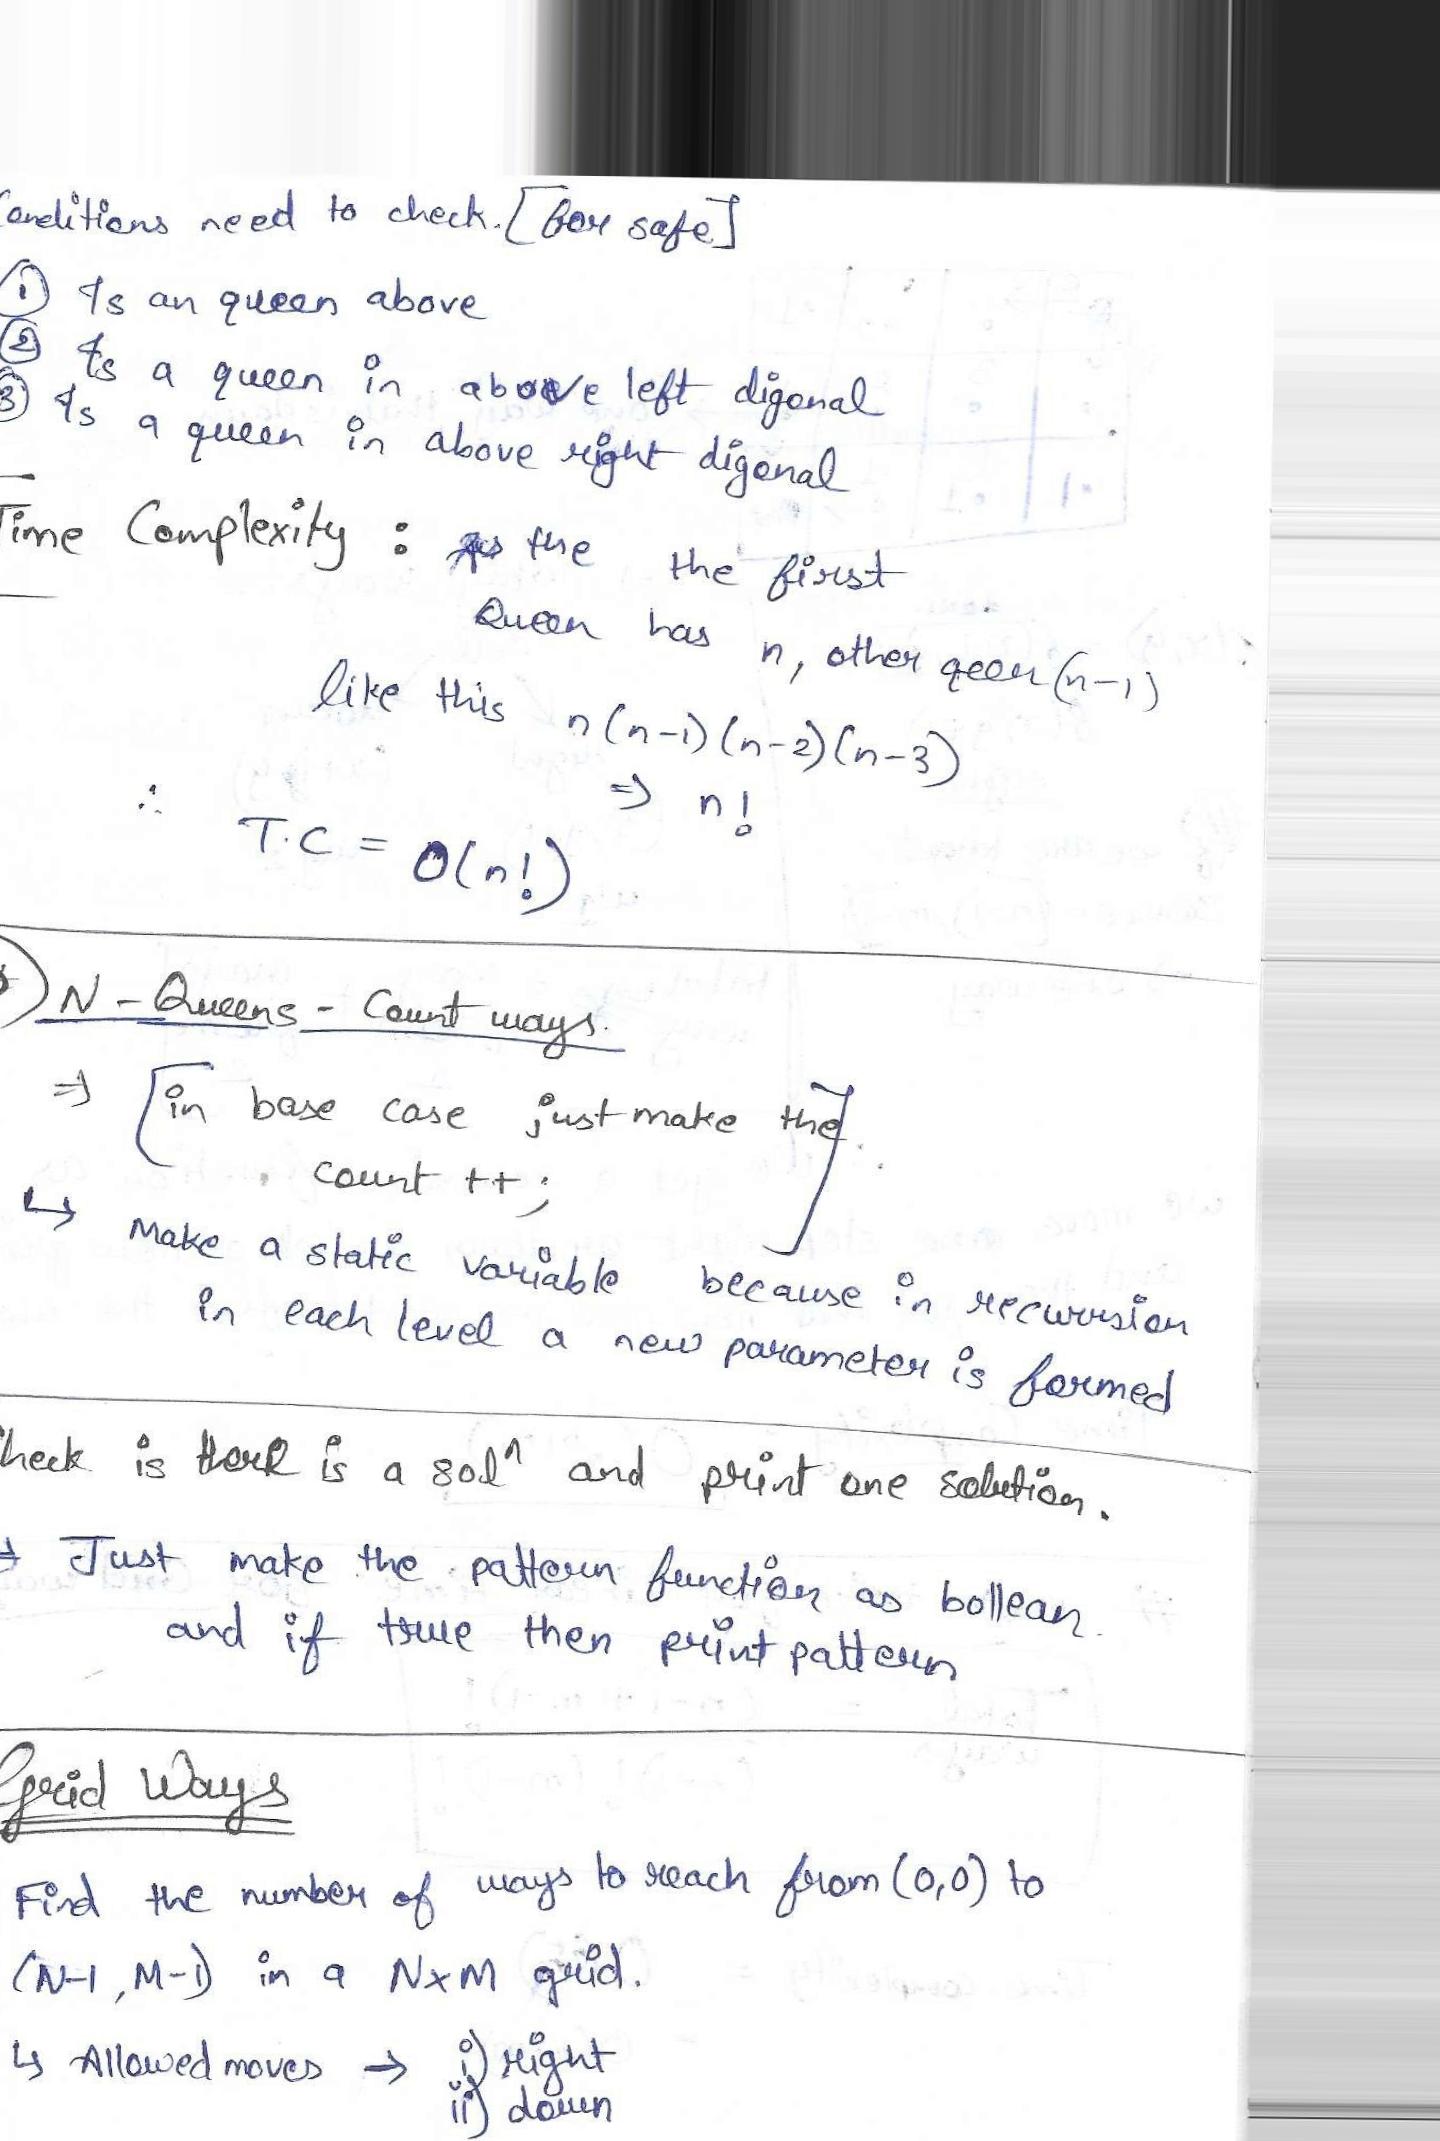 Conditions need to check. [for safe]
① Is an queen above
② Is a queen in above left digonal
③ Is a queen in above right digonal
Time Complexity : As the the first
Queen has n, other qeen (n-1)
like this n(n-1)(n-2)(n-3)
⇒ n!
∴ T.C = O(n!)
N-Queens - Count ways.
⇒ [in base case just make the
count ++;]
↳ Make a static variable because in recurrsion
in each level a new parameter is formed
Check is there is a solⁿ and print one solution.
⇒ Just make the pattern function as bollean
and if true then print pattern
Grid Ways
Find the number of ways to reach from (0,0) to
(N-1, M-1) in a NxM grid.
↳ Allowed moves → i) right
ii) down